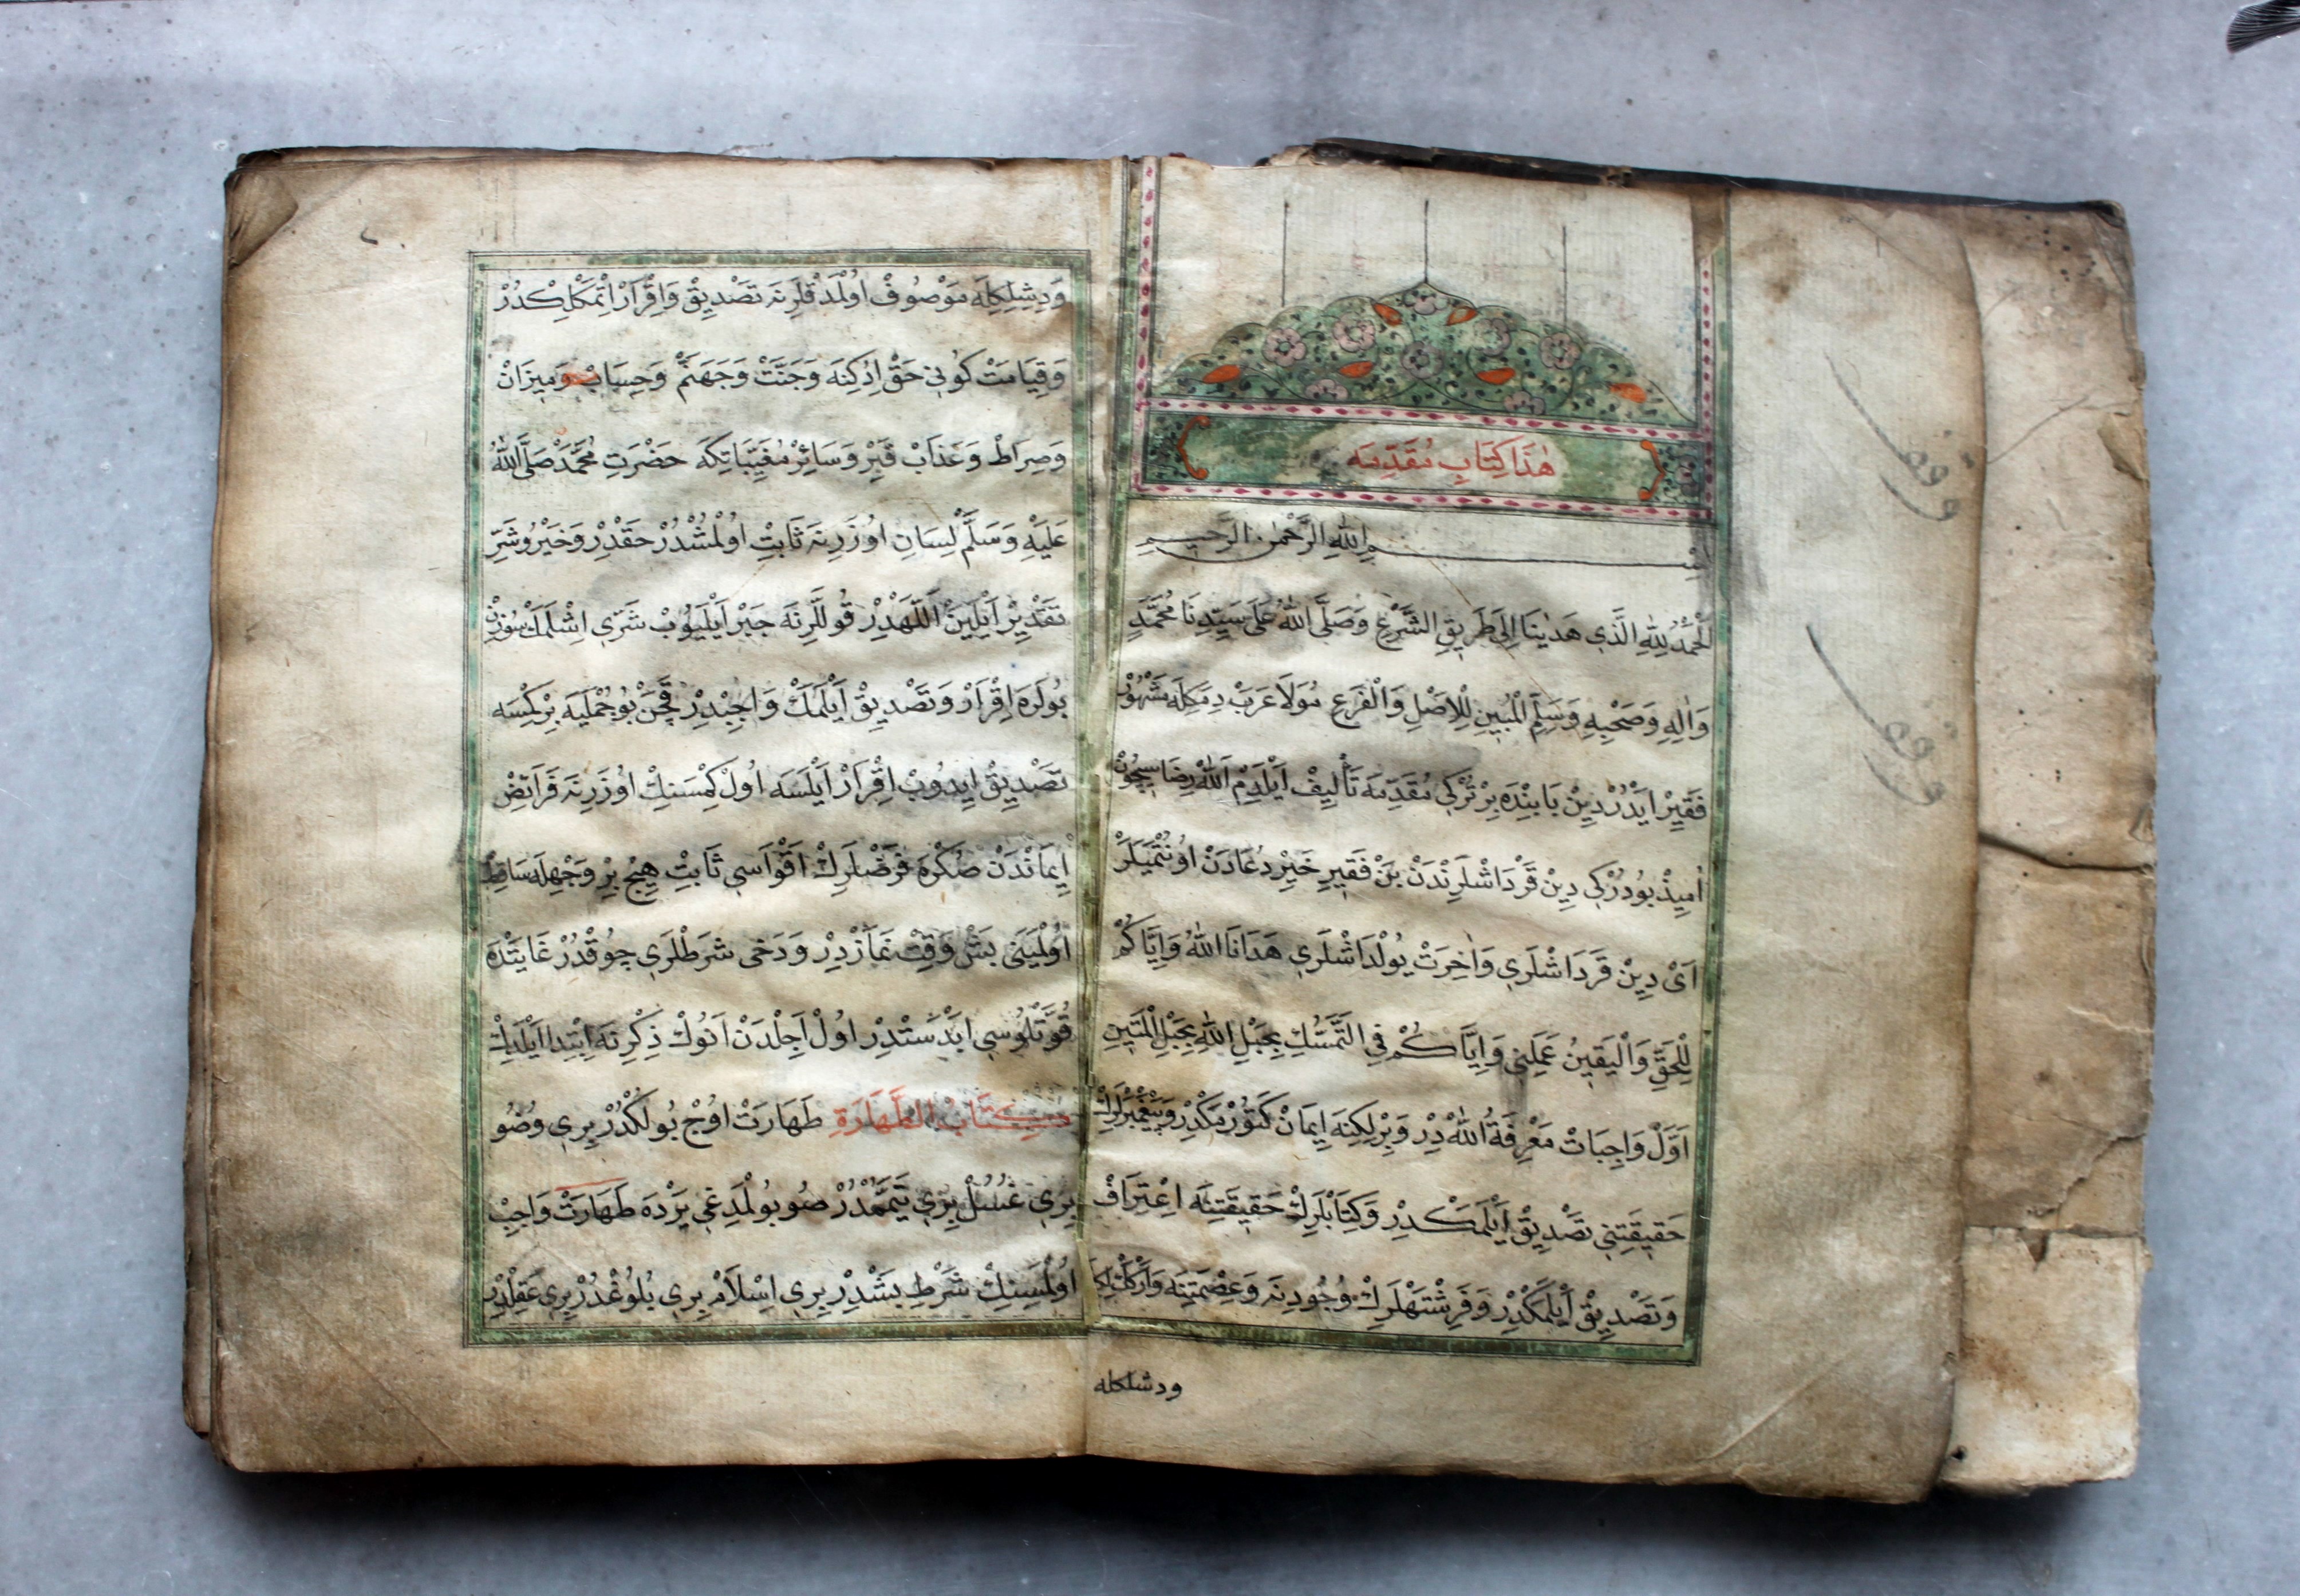 هٰذَا كِتَابِ مُقَدِّمَه
بِسْمِ اللهِ الرَّحْمٰنِ الرَّحِيمِ
اَلْحَمْدُ لِلّٰهِ الَّذِي هَدٰينَا اِلَى طَرِيقِ الشَّرْعِ وَصَلَّى اللهُ عَلَى سَيِّدِنَا مُحَمَّدٍ
وَاٰلِهِ وَصَحْبِهِ وَسَلِّمِ الْمُبِينِ لِلْاِصْلِ وَالْفَرَعِ مَوْلَا عَرَبْ دِمَكِلَه مَشْهُورْ
فَقِيرْ اَيْدُرْ دِينْ بَابِنْدَه بِرْ تُرْكِي مُقَدِّمَه تَأْلِيفْ اَيْلَدِمْ اَللّٰهْ رِضَاسِيچُونْ
اُمِيذْ بُودُرْكِي دِينْ قَرْدَاشْلَرِنْدَنْ بَنْ فَقِيرِ خَيِرْ دُعَادَنْ اُونُتْمَيَلَرْ
اَىْ دِينْ قَرَدَاشْلَرِي وَاٰخِرَتْ يُولْدَاشْلَرِي هَدَانَا اللهُ وَاِيَّاكُمْ
لِلْحَقِّ وَالْيَقِينُ عَمِلَنِي وَاِيَّاكُمْ فِي التَّمَسُّكِ بِحَبْلِ اللهِ بِحَبْلِ الْمَتِينِ
اَوَّلْ وَاجِبَاتْ مَعْرِفَةُ اللّٰهْ دِرْ وَبِرْلِكِنَه اِيمَانْ كَتُورْمَكْدِرْ وَپَيْغَمْبَرْلَرِكْ
حَقِيقَتِنِي تَصْدِيقْ اَيْلَمَكْدِرْ وَكِتَابْلَرِكْ حَقِيقَتِنَه اِعْتِرَافْ
وَتَصْدِيقْ اَيْلَمَكْدِرْ وَفَرِشْتَهْلَرِكْ وُجُودِنَه وَعِصْمَتِنَه
ودشلكله
وَدِشِلِكِلَه مَوْصُوفْ اُولْمَدْقْلَرِنَه تَصْدِيقْ وَاِقْرَارْ اِتْمَكْلِكْدُرْ
وَقِيَامَتْ كُونِي حَقْ اِدُكِنَه وَجَنَّتْ وَجَهَنَّمْ وَحِسَابْ وَمِيزَانْ
وَصِرَاطْ وَعَذَابْ قَبِرْ وَسَائِرْ مُغَيَّبَاتِكَه حَضْرَتِ مُحَمَّدْ صَلَّى اللهُ
عَلَيْهِ وَسَلَّمْ لِسَانِ اوُزَرِنَه ثَابِتْ اوُلْمُشْدُرْ حَقْدِرْ وَخَيْرُ وشَرِّ
تَقْدِيرْ اَيْلَيَنْ اَللّٰهْدِرْ قُوللَّرِنَه جَبْر اَيْلَيُوبْ شَرِّي اِشْلَمَكْ سُوزِنْ
بُولَرَه اِقْرَارْ وَتَصْدِيقْ اَيْلَمَكْ وَاجِبْدِرْ قَچَنْ بُوجُمْلَيَه بِرْكِمْسَه
تَصْدِيقْ اِيدُوبْ اِقْرَارْ اَيْلَسَه اُولْ كِمْسَنِكْ اوُزَرِنَه فَرَائِضْ
اِيمَانْدَنْ صُكْرَه فَرَضْلَرِكْ اَقْوَاسِي ثَابِتْ هِيچْ بِرْ وَجْهِلَه سَاقِطْ
اُولْمَيَنِي بَشْ وَقِتْ نَمَازْدِرْ وَدَخِي شَرَطْلَرِي چُوقْدُرْ غَايَتْدَه
قُوَّتْلُوسِي اَبْدَسْتْدِرْ اوُلْ اَجِلْدَنْ اَنُوكْ ذِكْرِنَه اِبْتِدَا اَيْلَدِكْ
كِتَابْ الطَّهَارَةِ طَهَارَتْ اوُچْ بُولُكْدُرْ بِرِي وُضُو
بِرِي غُسُلْ بِرِي تَيَمُّمْدُرْ صُو بُولْمَدِغِي يَرْدَه طَهَارَتْ وَاجِبْ
اُولْمَسِنِكْ شَرْطِ بَشْدِرْ بِرِي اِسْلَامْ بِرِي بُلُوغْدُرْ بِرِي عَقِلْدِرْ
وقف
وقف